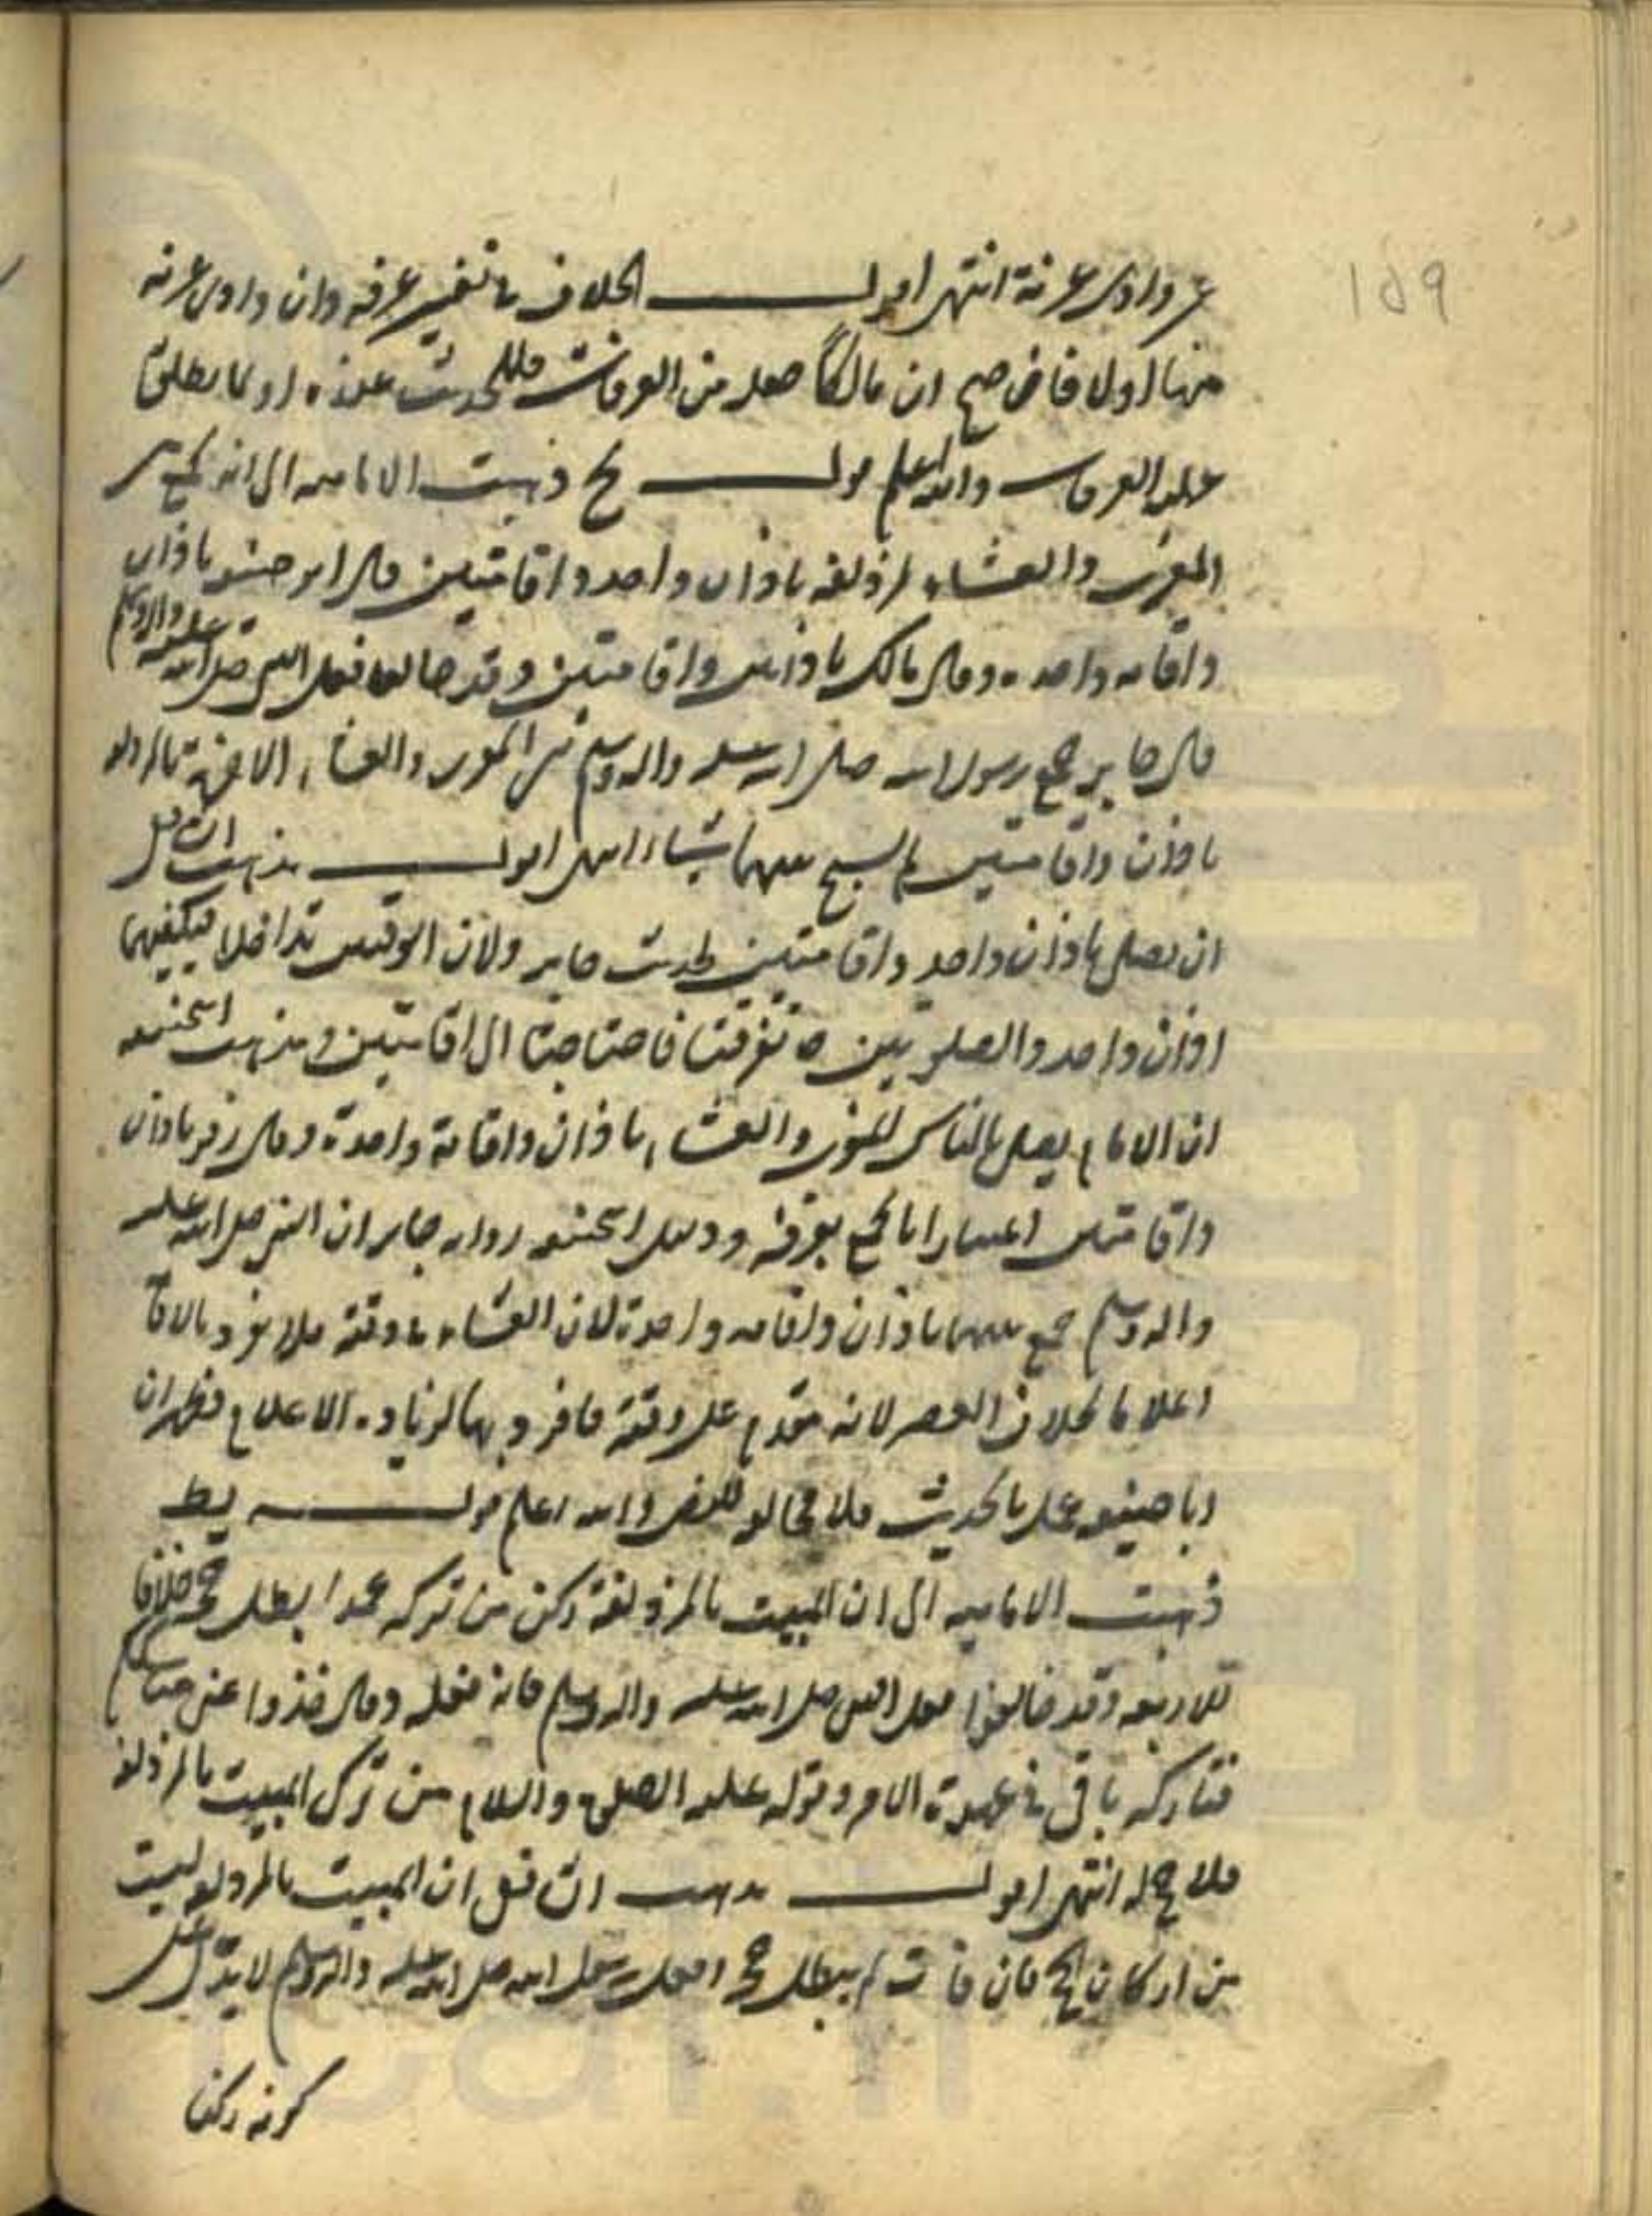 159
عن وادي عرنة انتهى اقول الخلاف في تفسير عرفه وان وادي عرنه
منها او لا فان صح ان مالكا جعله من العرفات فللحديث عنده او لما يطلق
عليه العرفات والله اعلم قوله ذهبت الامامية الى انه يجمع بين
المغرب والعشاء بمزدلفه باذان واحد واقامتين وقال ابو حنيفه باذان
واقامه واحده وقال مالك باذانين واقامتين وقد خالفا فعل النبي صلى الله عليه واله وسلم
قال جابر جمع رسول الله صلى الله عليه واله وسلم بين المغرب والعشاء الاخرة بالمزدلفه
باذان واقامتين لم يسبح بينهما شيئا انتهى اقول مذهب الشافعي
ان يصلي باذان واحد واقامتين لحديث جابر ولان الوقتين تداخلا فيكفيهما
اذان واحد والصلوتين تفرقتا فاحتاجتا الى اقامتين ومذهب ابي حنيفه
ان الامام يصلي بالناس المغرب والعشاء باذان واقامة واحدة وقال زفر باذان
واقامتين اعتبارا بالجمع بعرفة ودليل ابي حنيفه رواية جابر ان النبي صلى الله عليه
واله وسلم جمع بينهما باذان واقامه واحدة لان العشاء في وقته فلا يفرد بالاقامة
اعلاما بخلاف العصر لانه مقدم على وقته فافرد بها لزيادة الاعلام فظهر ان
ابا حنيفه عمل بالحديث فلا مخالفة للنص والله اعلم قوله يط
ذهبت الامامية الى ان المبيت بالمزدلفة ركن من تركه عمدا بطل حجه خلافا
للاربعة وقد خالفوا فعل النبي صلى الله عليه واله وسلم فانه فعله وقال خذوا عني مناسككم
فتاركه باق في عهدة الامر وقوله عليه الصلوة والسلام من ترك المبيت بالمزدلفة
فلا حج له انتهى اقول مذهب الشافعي ان المبيت بالمزدلفة ليست
من اركان الحج فان فات لم يبطل حجه وفعل رسول الله صلى الله عليه واله وسلم لا يدل على
كونه ركنا